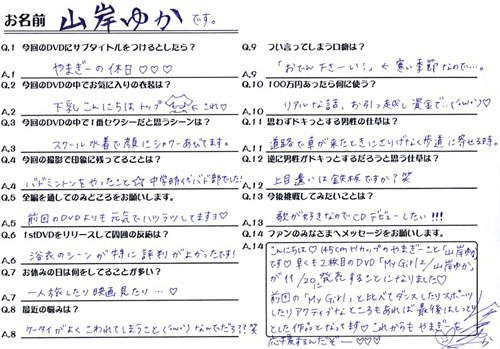 お名前 山岸ゆか です。
Q.1 今回のDVDにサブタイトルをつけるとしたら？
A.1 やまぎーの休日♡♡♡
Q.2 今回のDVDの中でお気に入りの衣装は？
A.2 下乳こんにちはトップ ←これ♡
Q.3 今回のDVDの中で1番セクシーだと思うシーンは？
A.3 スクール水着で顔にシャワーあびてます。
Q.4 今回の撮影で印象に残ってることは？
A.4 バドミントンをやったこと☆ 中学時代バド部でした!
Q.5 全編を通してのみどころをお願いします。
A.5 前回のDVDよりも元気でハツラツしてます♡
Q.6 1stDVDをリリースして周囲の反応は？
A.6 浴衣のシーンが特に評判がよかったです!
Q.7 お休みの日は何をしてることが多い？
A.7 一人旅したり映画見たり…♡
Q.8 最近の悩みは？
A.8 ケータイがよくこわれてしまうこと(´・ω・`)なんでだろ??笑
Q.9 つい言ってしまう口癖は？
A.9 「おでん下さーい!」 ← 寒い季節なので…。
Q.10 100万円あったら何に使う？
A.10 リアルな話、お引っ越し資金で…(´・ω・`)
Q.11 思わずドキっとする男性の仕草は？
A.11 道路で車が来たときにさりげなく歩道に寄せる時。
Q.12 逆に男性がドキっとするだろうと思う仕草は？
A.12 上目遣いは鉄板ですか？笑
Q.13 今後挑戦してみたいことは？
A.13 歌が好きなのでCDデビューしたい!!!
Q.14 ファンのみなさまへメッセージをお願いします。
A.14 こんにちは♡145cm Fカップのやまぎーこと「山岸ゆか」
です♡早くも2枚目のDVD「My Girl2/山岸ゆか」
が11/20に発売することになりました♡
前回の「My Girl」と比べてダンスしたりスポーツ
したりアクティブなところもあれば最後はしっとり
とした作品となってます♡これからもやまぎーを
応援するんだぞー♡♡♡